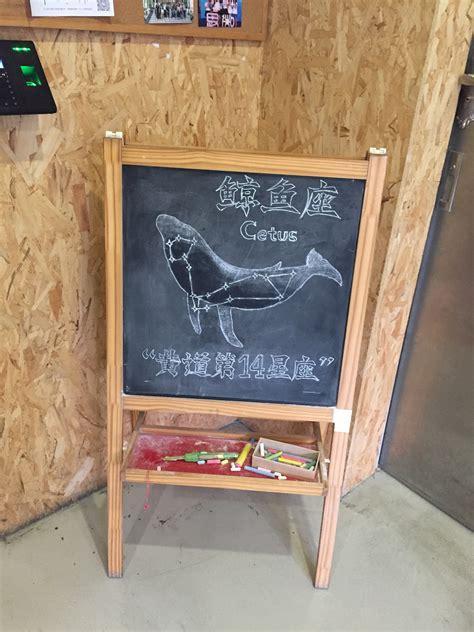 鲸鱼座
Cetus
“黄道第14星座”